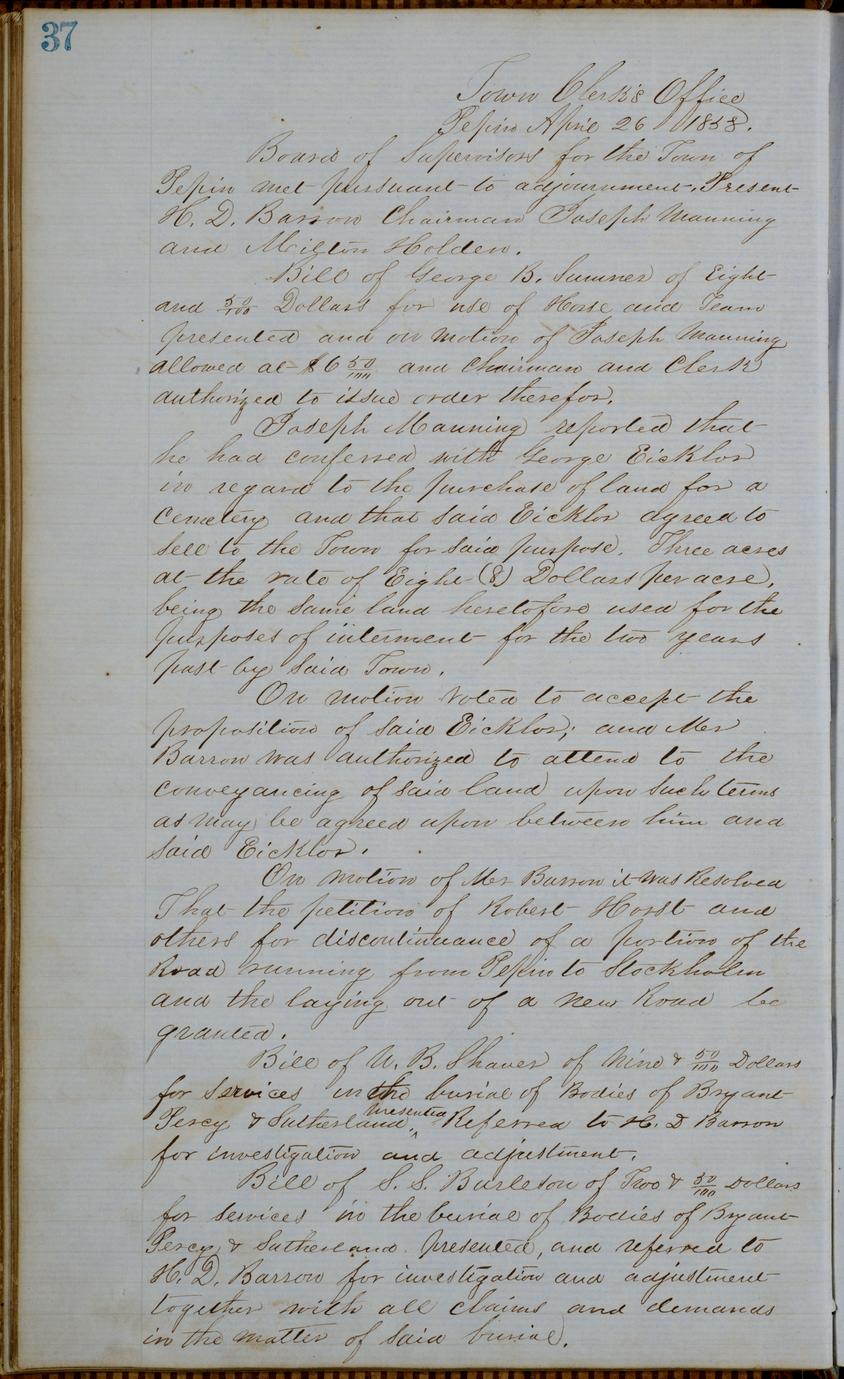 37
Town Clerk's Office
Pepin April 26 1858.
Board of Supervisors for the Town of
Pepin met pursuant to adjournment. Present
H. D. Barron Chairman Joseph Manning
and Milton Holden.
Bill of George B. Sumner of Eight
and 50/100 Dollars for use of Horse and Team
presented and on motion of Joseph Manning
allowed at $6 50/100 and Chairman and Clerk
authorized to issue order therefor.
Joseph Manning reported that
he had conferred with George Eicklor
in regard to the purchase of land for a
Cemetery and that said Eicklor agreed to
sell to the Town for said purpose. Three acres
at the rate of Eight (8) Dollars per acre,
being the same land heretofore used for the
purposes of interment for the two years
past by said Town.
On motion voted to accept the
proposition of said Eicklor; and Mr
Barron was authorized to attend to the
conveyancing of said land upon such terms
as may be agreed upon between him and
said Eicklor.
On motion of Mr Barron it was Resolved
That the petition of Robert Horst and
others for discontinuance of a portion of the
Road running from Pepin to Stockholm
and the laying out of a new Road be
granted.
Bill of U. B. Shaver of Nine & 50/100 Dollars
for services in the burial of Bodies of Bryant
Percy & Sutherland, presented Referred to H. D Barron
for investigation and adjustment.
Bill of S. S. Burleson of Two & 50/100 Dollars
for services in the burial of Bodies of Bryant
Percy & Sutherland presented, and referred to
H. D. Barron for investigation and adjustment
together with all claims and demands
in the matter of said burial.